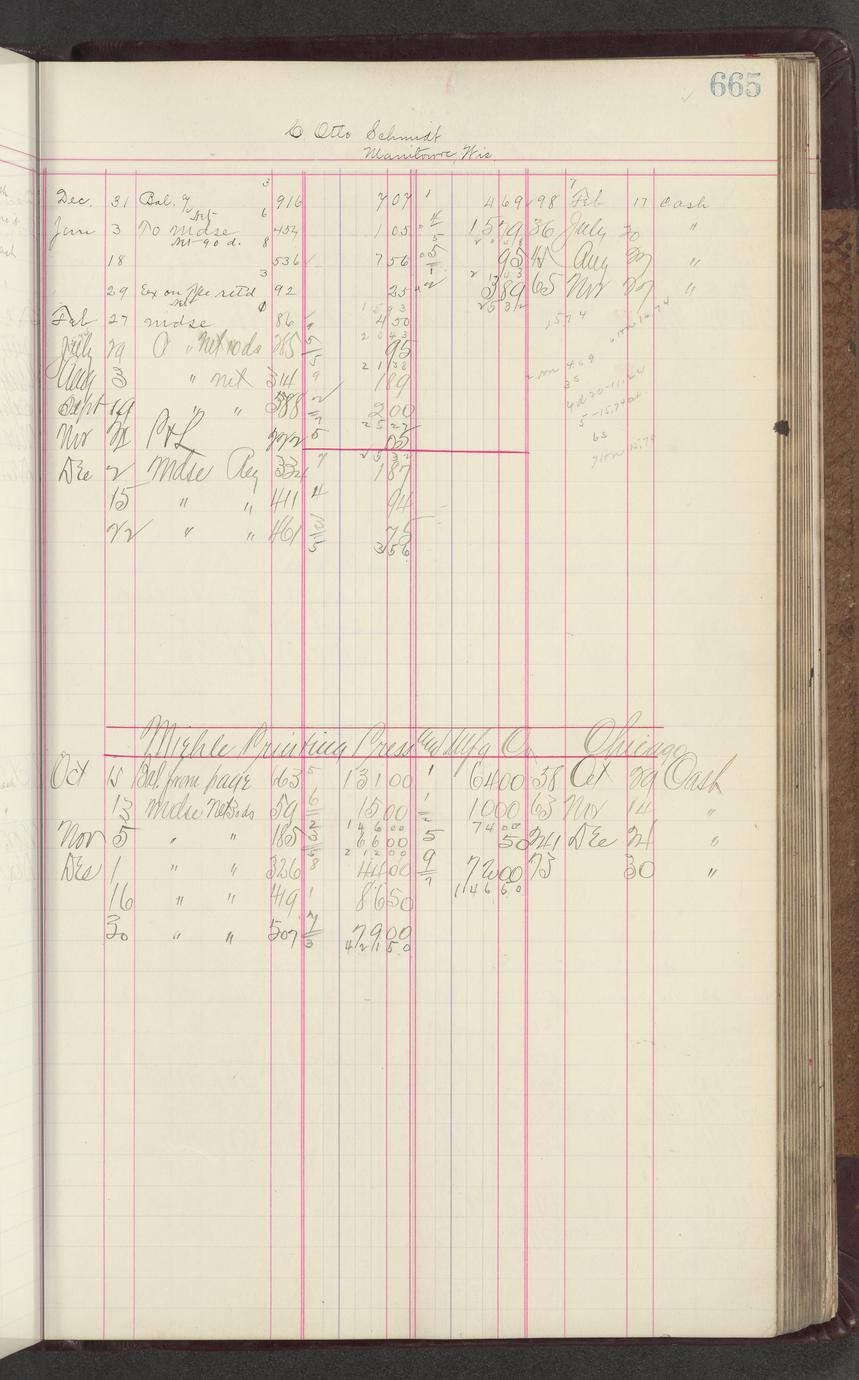 665
C Otto Schmidt
Manitowoc, Wis
Dec. 31 Bal. 916 3 7 07 1 4 69 98 Feb 17 Cash
June 3 To mdse 454 6 1 05 15 79 36 July 20 "
Nt 90 d.
18 536 8 7 56 95 45 Aug 27 "
29 Ex on retd 92 3 25 3 89 65 Nov 27 "
25 32
Feb 27 mdse 86 4 50
July 29 " Net 10 ds 285 95
Aug 3 " net 314 9 1 89
Sept 19 " " 388 2 00
25 27
Nov P & L 222 5 05
25 32
Dec 2 Mdse Reg 334 7 1 87
15 " " 411 4 94
22 " " 461 75
3 56
Miehle Printing Press and Mfg Co Chicago
Oct 15 Bal from page 663 5 131 00 1 64 00 38 Oct 29 Cash
13 Mdse Net 3 ds 59 6 15 00 10 00 63 Nov 14 "
146 00 74 00
Nov 5 " " 185 66 00 5 50 241 Dec 24 "
212 00
Dec 1 " " 326 8 44 00 9 72 00 73 30 "
114 6 50
16 " " 419 1 86 50
30 " " 507 7 79 00
3 421 50